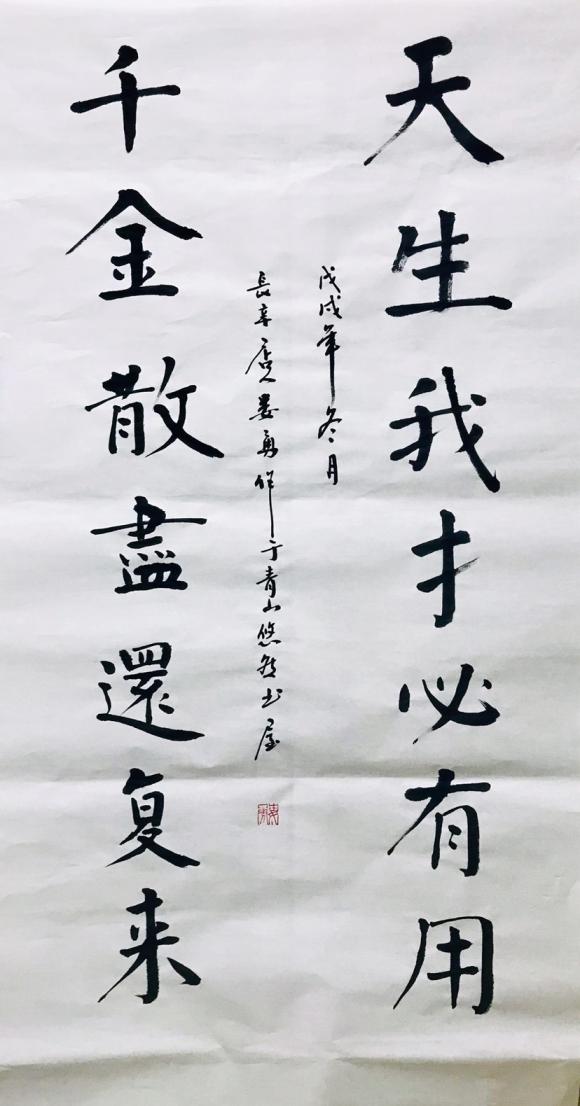 天生我才必有用
千金散盡還复来
戊戌年冬月
長辛店人娄勇作于青山悠然书屋